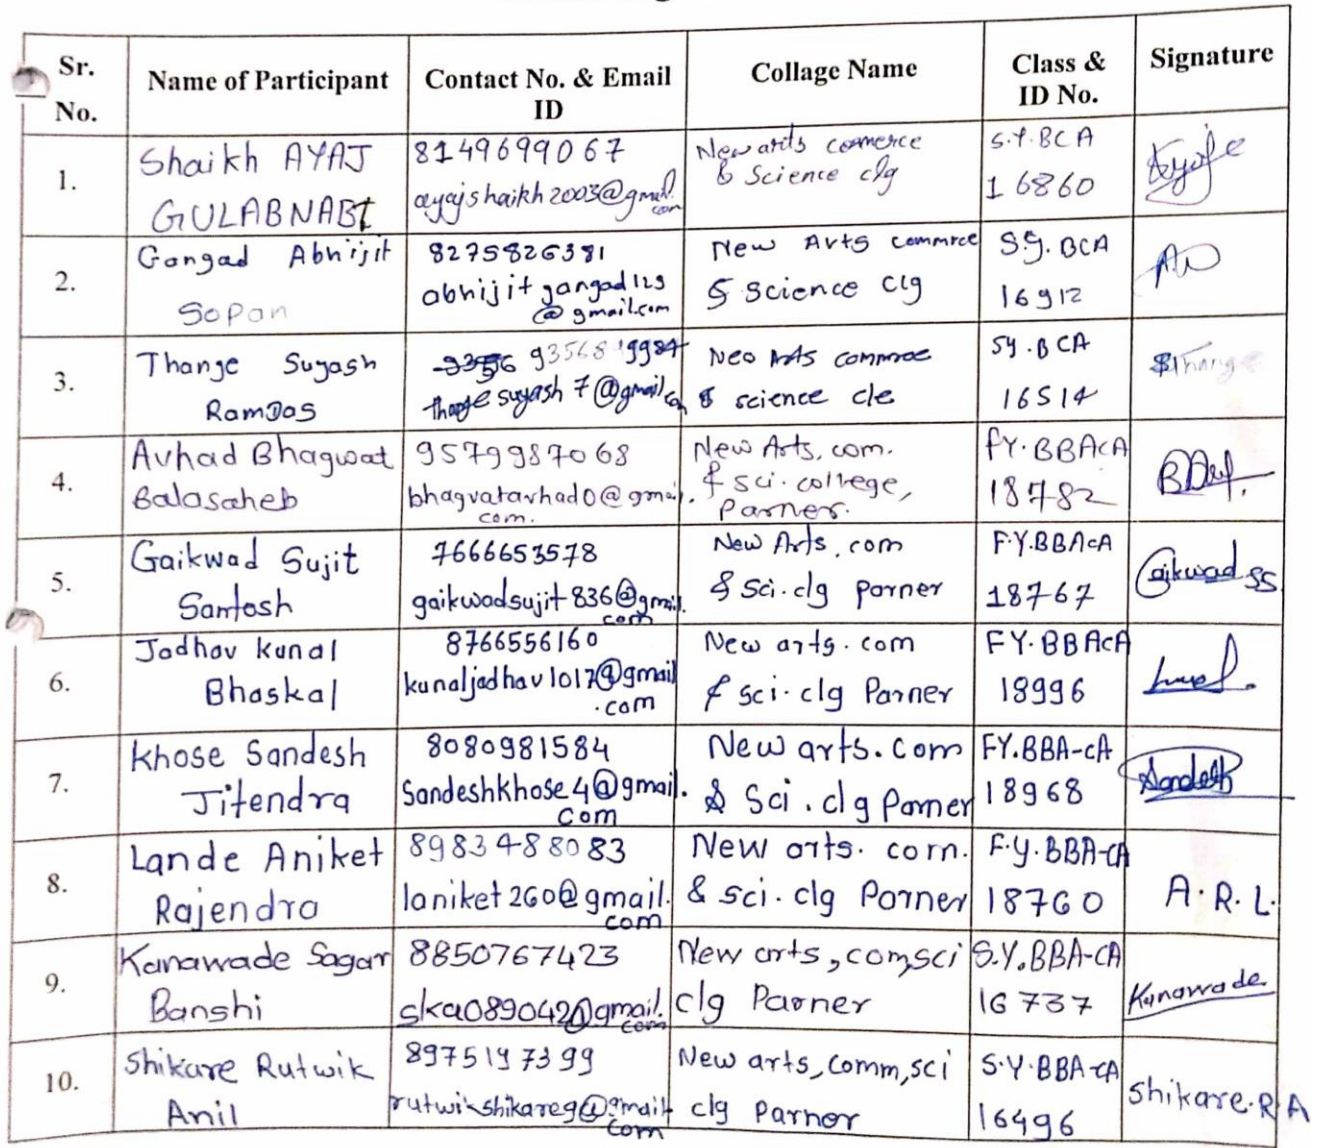 Sr. No.
Name of Participant
Contact No. & Email ID
Collage Name
Class & ID No.
Signature
1.
Shaikh AYAJ
GULABNABI
8149699067
ayajshaikh2003@gmail.com
New arts commerce
& Science clg
S.Y.BCA
16860
2.
Gangad Abhijit
Sopan
8275826381
abhijitgangad129
@gmail.com
New Arts commrce
& science clg
Sy. BCA
16912
3.
Thange Suyash
Ramdas
thangesuyash7@gmail.com
New Arts commrce
& science cle
sy.BCA
16514
4.
Avhad Bhagwat
Balasaheb
9579987068
bhagvatavhad0@gmail.
com.
New Arts, com.
& sci. college,
Parner.
FY.BBACA
18782
5.
Gaikwad Sujit
Santosh
7666653578
gaikwadsujit836@gmail.
com
New Arts, com
& sci. clg parner
F.Y.BBACA
18767
Gaikwad SS
6.
Jadhav kunal
Bhaskal
8766556160
kunaljadhav1017@gmail
.com
New arts. com
& sci. clg Parner
FY.BBACA
18996
7.
khose Sandesh
Jitendra
8080981584
Sandeshkhose4@gmail.
com
New arts. com
& Sci. clg Parner
FY.BBA-CA
18968
Sandesh
8.
Lande Aniket
Rajendra
8983488083
laniket260@gmail.
com
New arts. com.
& sci. clg Parner
F.Y.BBA-CA
18760
A. R. L.
9.
Kanawade Sagar
Banshi
8850767423
ska089042@gmail.
com
New arts, com,sci
clg Parner
S.Y.BBA-CA
16737
Kanawade
10.
Shikare Rutwik
Anil
8975197399
rutwikshikare9@gmail
com
New arts, comm, sci
clg Parner
S.Y.BBA-CA
16496
Shikare.R A